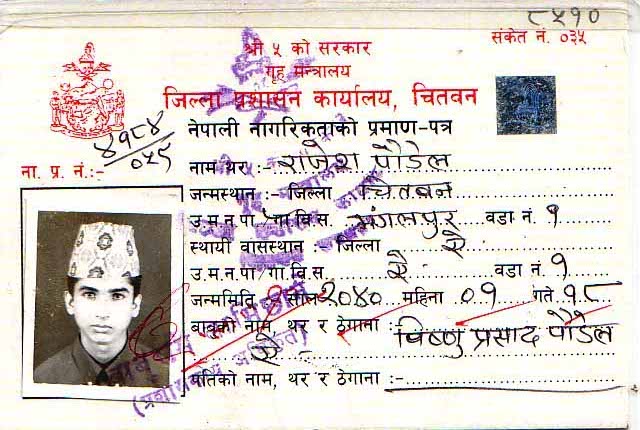 ८५१०
श्री ५ को सरकार
संकेत नं. ०३५
गृह मन्त्रालय
जिल्ला प्रशासन कार्यालय, चितवन
नेपाली नागरिकताको प्रमाण-पत्र
४१८४
ना. प्र. नं.:- ०५५
नाम थर :- राजेश पौडेल
जन्मस्थान :- जिल्ला चितवन
उ.म.न.पा/गा.वि.स. मंगलपुर वडा नं १
स्थायी वासस्थान :- जिल्ला ऐ
उ.म.न.पा/गा.वि.स. ऐ वडा नं. १
जन्ममिति :- साल २०४० महिना ०१ गते १८
बाबुको नाम, थर र ठेगाना : विष्णु प्रसाद पौडेल
ऐ -
पतिको नाम, थर र ठेगाना :-